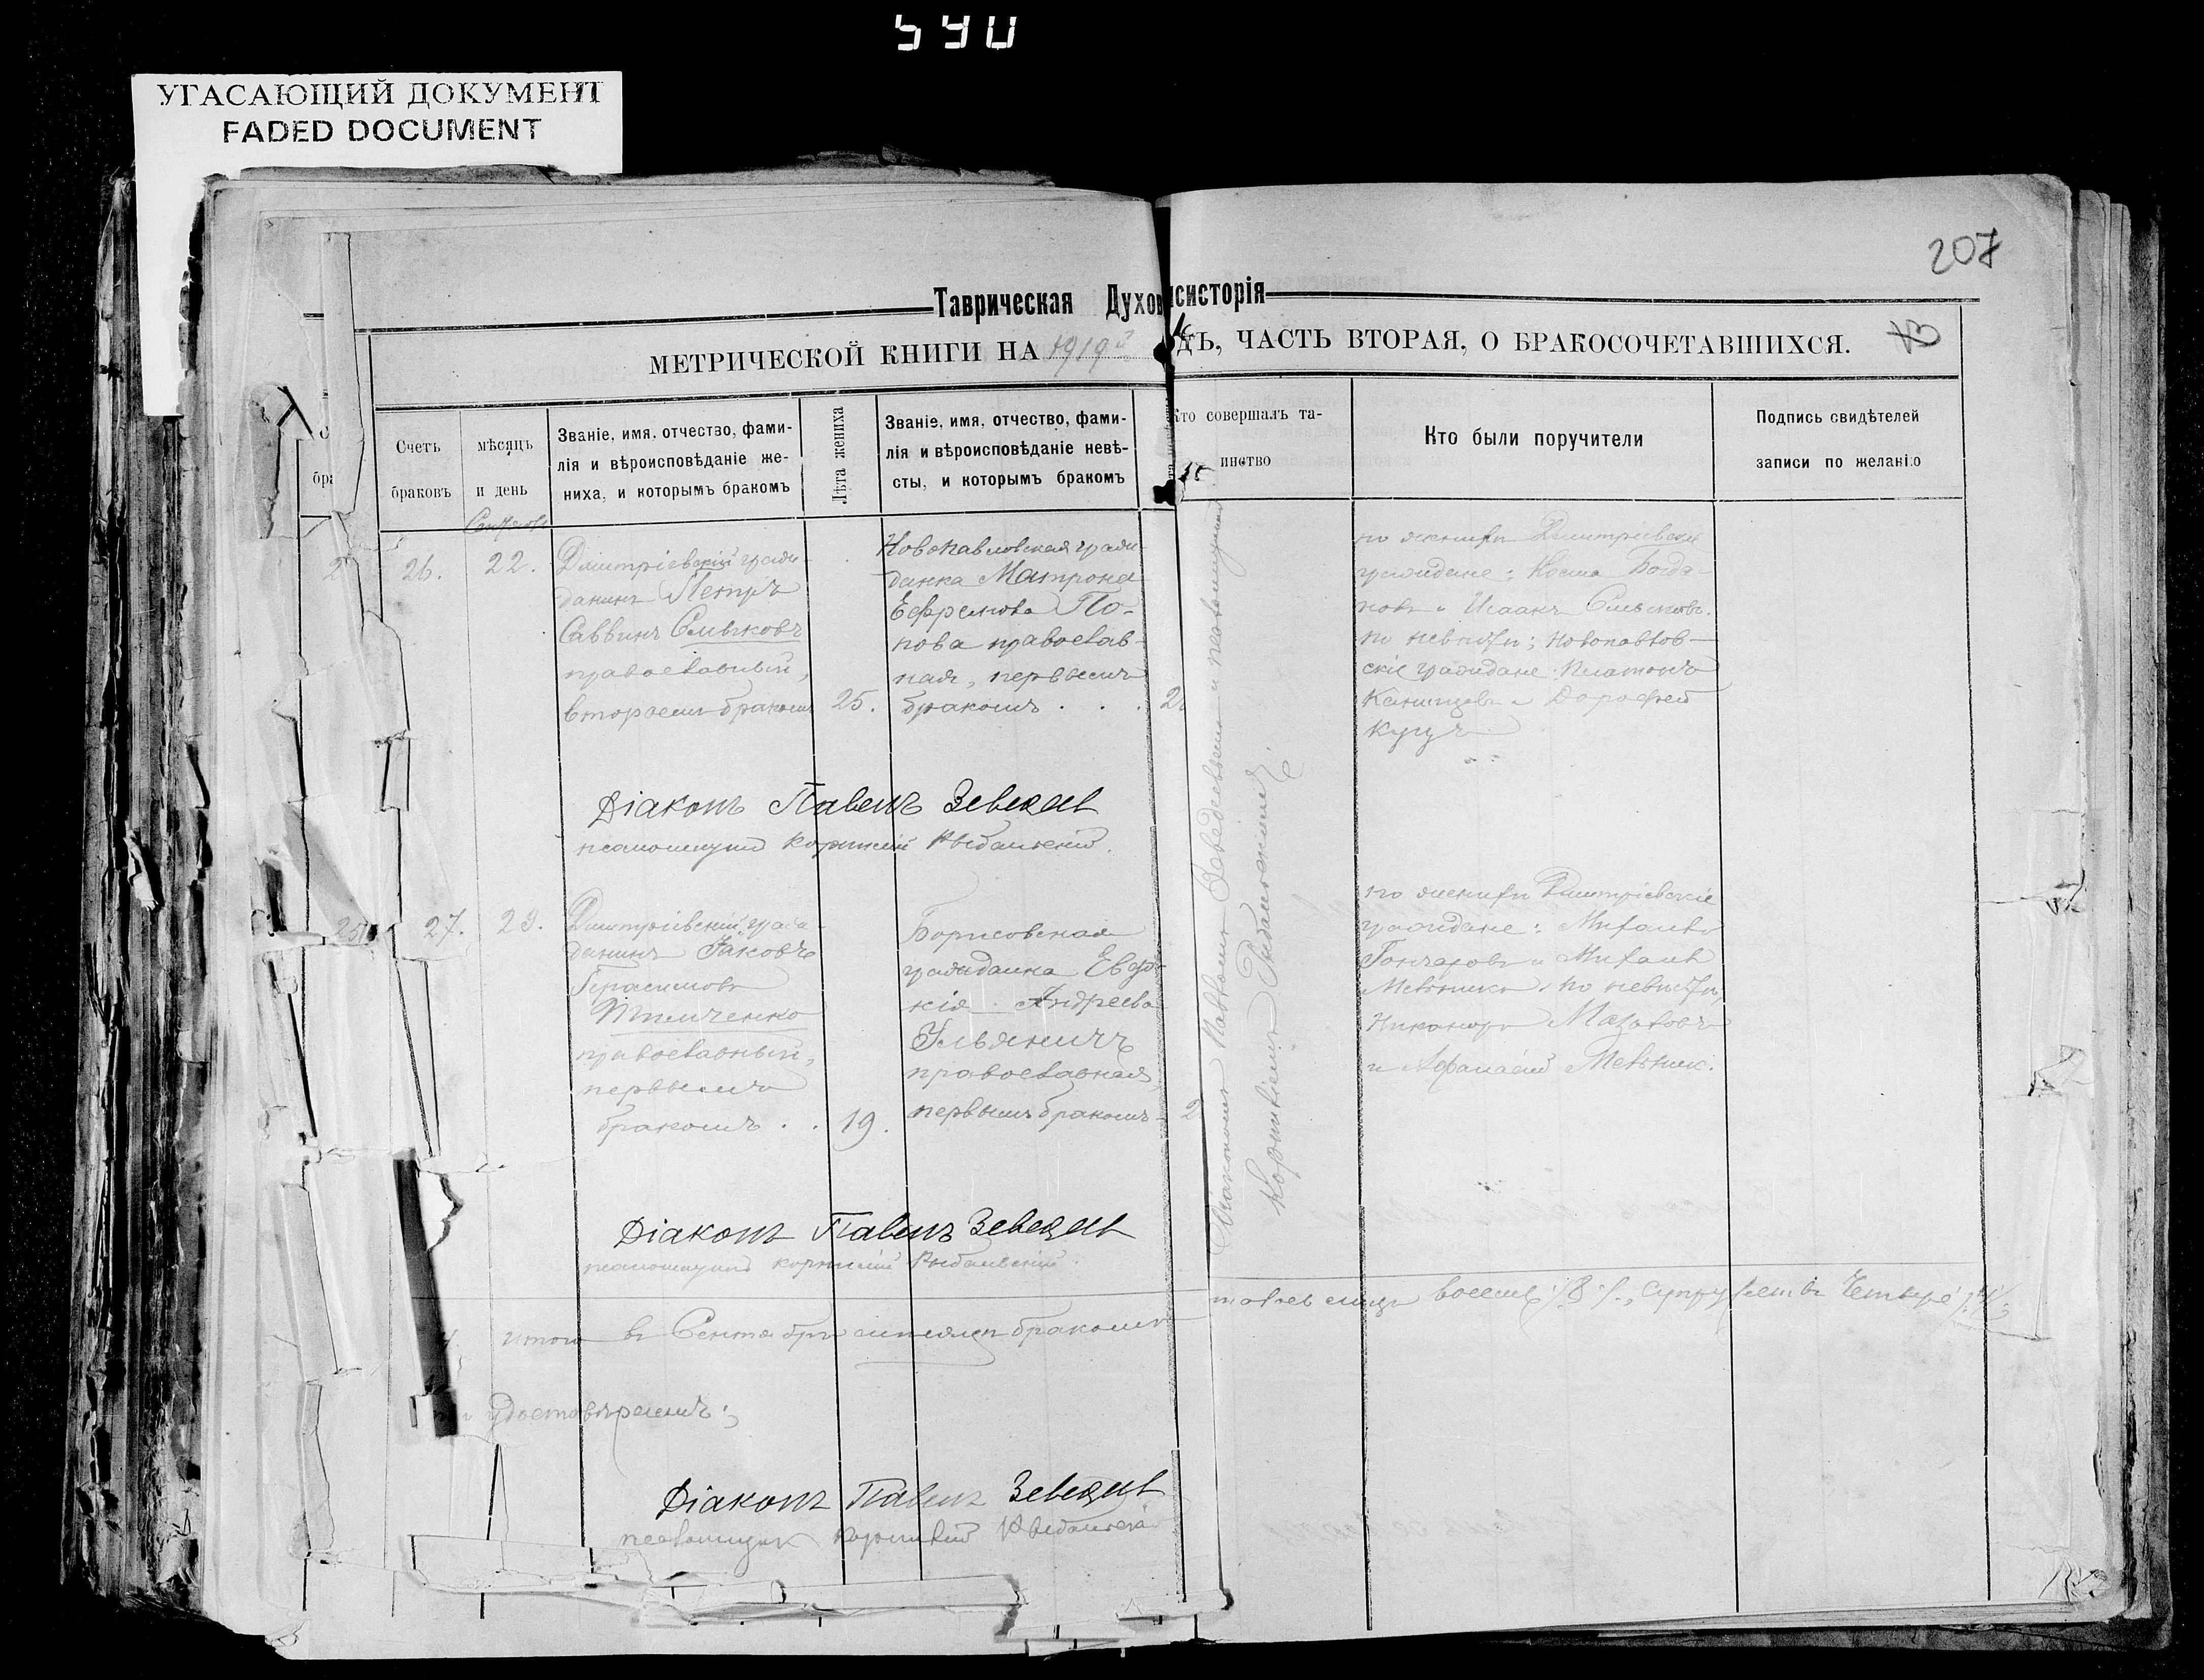 590
УГАСАЮЩИЙ ДОКУМЕНТ
FADED DOCUMENT
207
Таврическая Духов
нсисторія
МЕТРИЧЕСКОЙ КНИГИ НА 1919й
дъ, ЧАСТЬ ВТОРАЯ, О БРАКОСОЧЕТАВШИХСЯ.
Счетъ
браковъ
мѣсяцъ
и день
Званіе, имя, отчество, фами-
лія и вѣроисповѣданіе же-
ниха, и которымъ бракомъ
Лѣта жениха
Званіе, имя, отчество, фами-
лія и вѣроисповѣданіе невѣ-
сты, и которымъ бракомъ
Кто совершалъ та-
инство
Кто были поручители
Подпись свидѣтелей
записи по желанію
26.
22.
Димтріевскій граж-
данинъ Петръ
Саввинъ Смыковъ
православный,
вторымъ бракомъ
25.
Новопавловская граж-
данка Матрона
Ефремова По-
пова православ-
ная, первымъ
бракомъ
2
Діаконом Павломъ Зеведеевымъ и псаломщикомъ
Корниліемъ Рыбальскимъ
по женихѣ Димитріевскіе
граждане: Косма Богда-
новъ и Исаакъ Смыковъ.
по невѣстѣ: Новопавлов-
скіе граждане Платонъ
и Дорофей
Кугуч
Діаконъ Павелъ Зеведеев
псаломщикъ Корнилій Рыбальскій.
27.
29.
Димитріевскій граж-
данинъ Іаковъ
Герасимовъ
Тимченко
православный,
первымъ
бракомъ . .
19.
Борисовская
гражданка Евдо-
кія Андреева
Ульяничъ
православная
первымъ бракомъ
2
по женихѣ Димитріевскіе
граждане: Михаилъ
Гончаровъ и Михаилъ
Мельникъ. по невѣстѣ,
Никаноръ Мазаловъ
и Афанасій Мельник.
Діаконъ Павелъ Зеведеев
псаломщикъ Корнилій Рыбальскій
итого въ Сентябрѣ мѣсяцѣ бракомъ
восемь /8/, супружествъ четыре /4/
удостовѣряемъ:
Діаконъ Павелъ Зеведеев
псаломщикъ Корнилій Рыбальскій